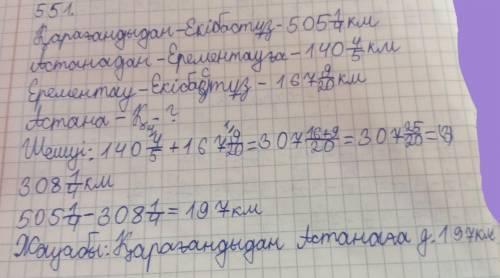 551.
Қарағандыдан-Екібастуз-505 1/4 км
Астанадан-Ерементауға-140 4/5 км
Ерементау-Екібастуз-167 9/20 км
Астана-Қ-?
Шешуі: 140 4/5 + 167 9/20 = 307 16+9/20 = 307 25/20 =
308 1/4 км
505 1/4 - 308 1/4 = 197 км
Жауабы: Қарағандыдан Астанаға д. 197 км